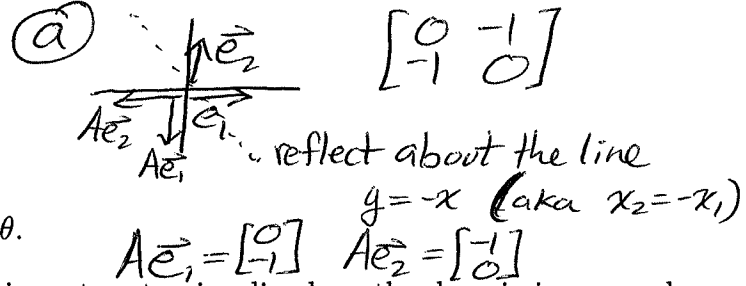 (a)
e⃗₂
[0 -1
-1 0]
Ae⃗₂
e⃗₁
Ae⃗₁
reflect about the line
y = -x (aka x₂ = -x₁)
θ.
Ae⃗₁ = [0
-1] Ae⃗₂ = [-1
0]